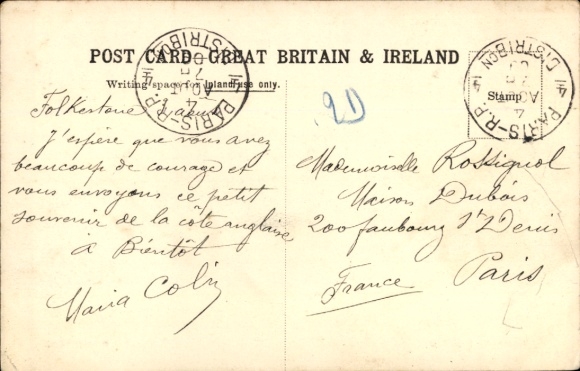 POST CARD GREAT BRITAIN & IRELAND
Writing space for Inland use only.
Stamp
PARIS-R.P. DISTRIBON
PARIS-R.P. DISTRIBON
2D
Folkestone
J'espère que vous avez
beaucoup de courage et
vous envoyons ce petit
souvenir de la côte anglaise
à Bientôt
Maria Colin
Mademoiselle Rossignol
Maison Dubois
200 faubourg St Denis
Paris
France